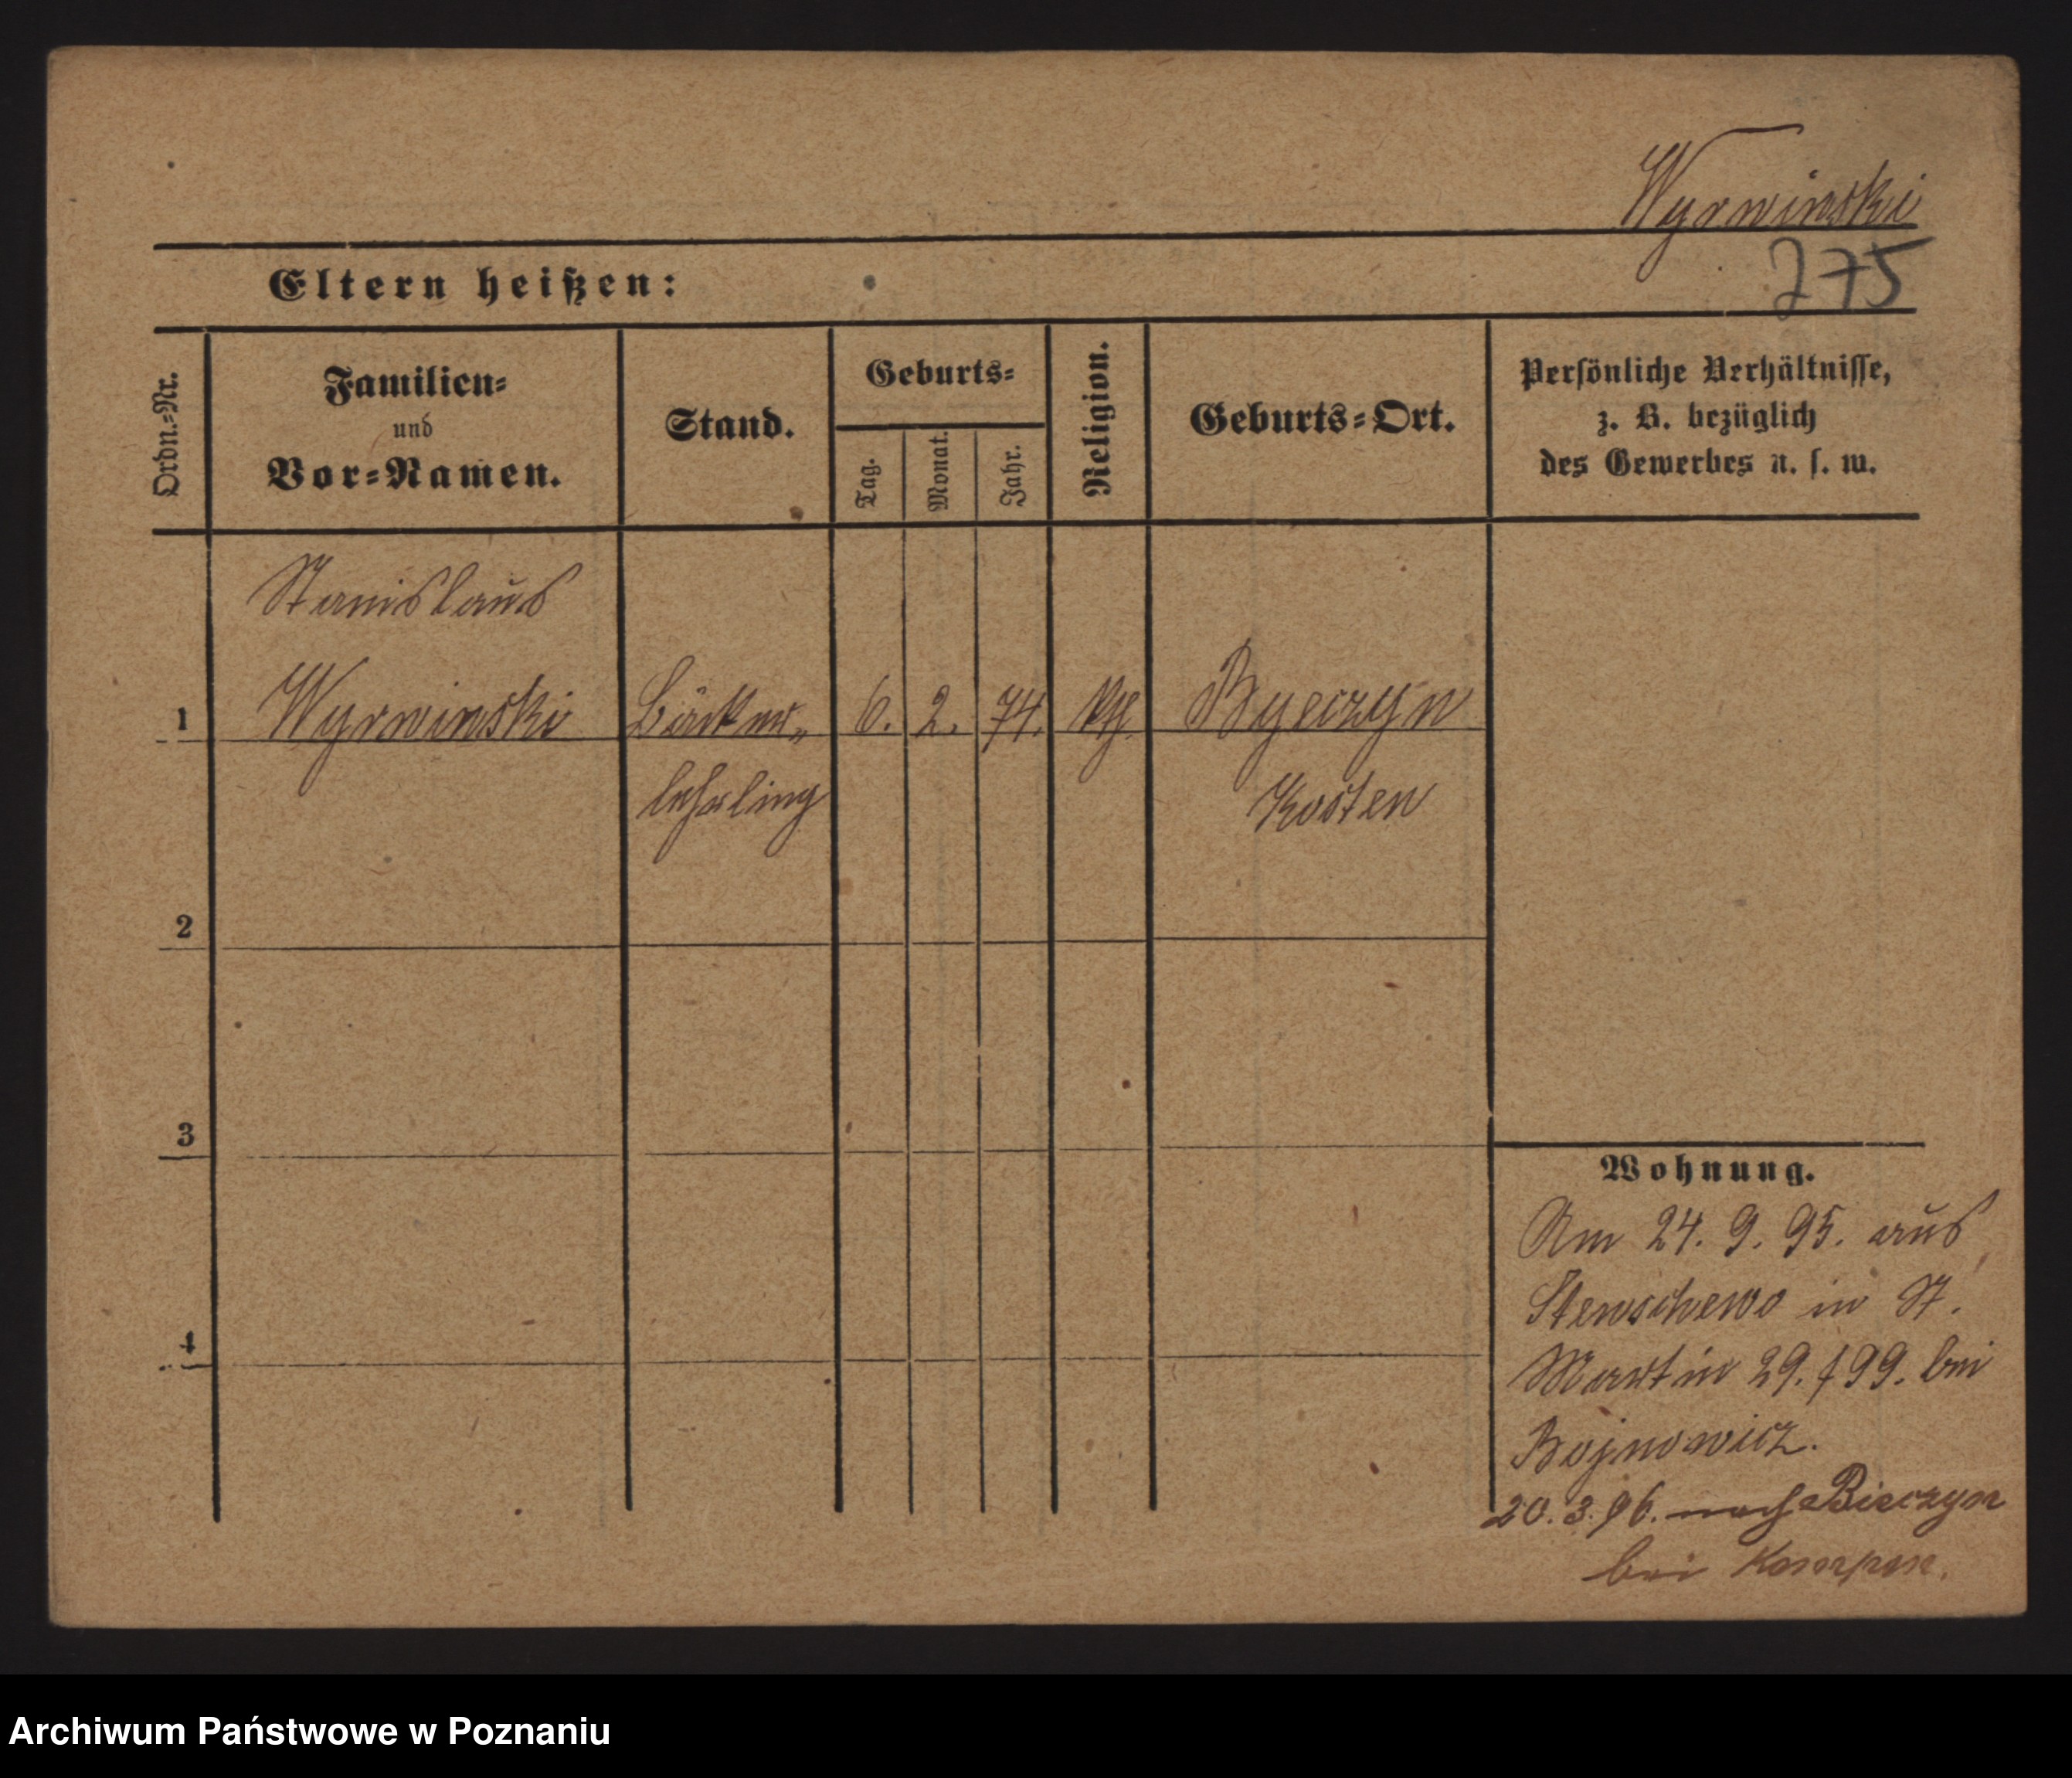 Wyrwinski
275
Eltern heißen:
Ordn.-Nr.
Familien-
und
Vor-Namen.
Stand.
Geburts-
Tag.
Monat.
Jahr.
Religion.
Geburts-Ort.
Persönliche Verhältnisse,
z. B. bezüglich
des Gewerbes u. s. w.
Stanislaus
1 Wyrwinski Bäcker„ 6. 2. 74. Byeczyn
lehrling Kosten
2
3
4
Wohnung.
Am 24. 9. 95. aus
Stenschewo in St.
Martin 29. bei
Bojnowicz.
20.3.96. nach Bieczyn
bei
Archiwum Państwowe w Poznaniu